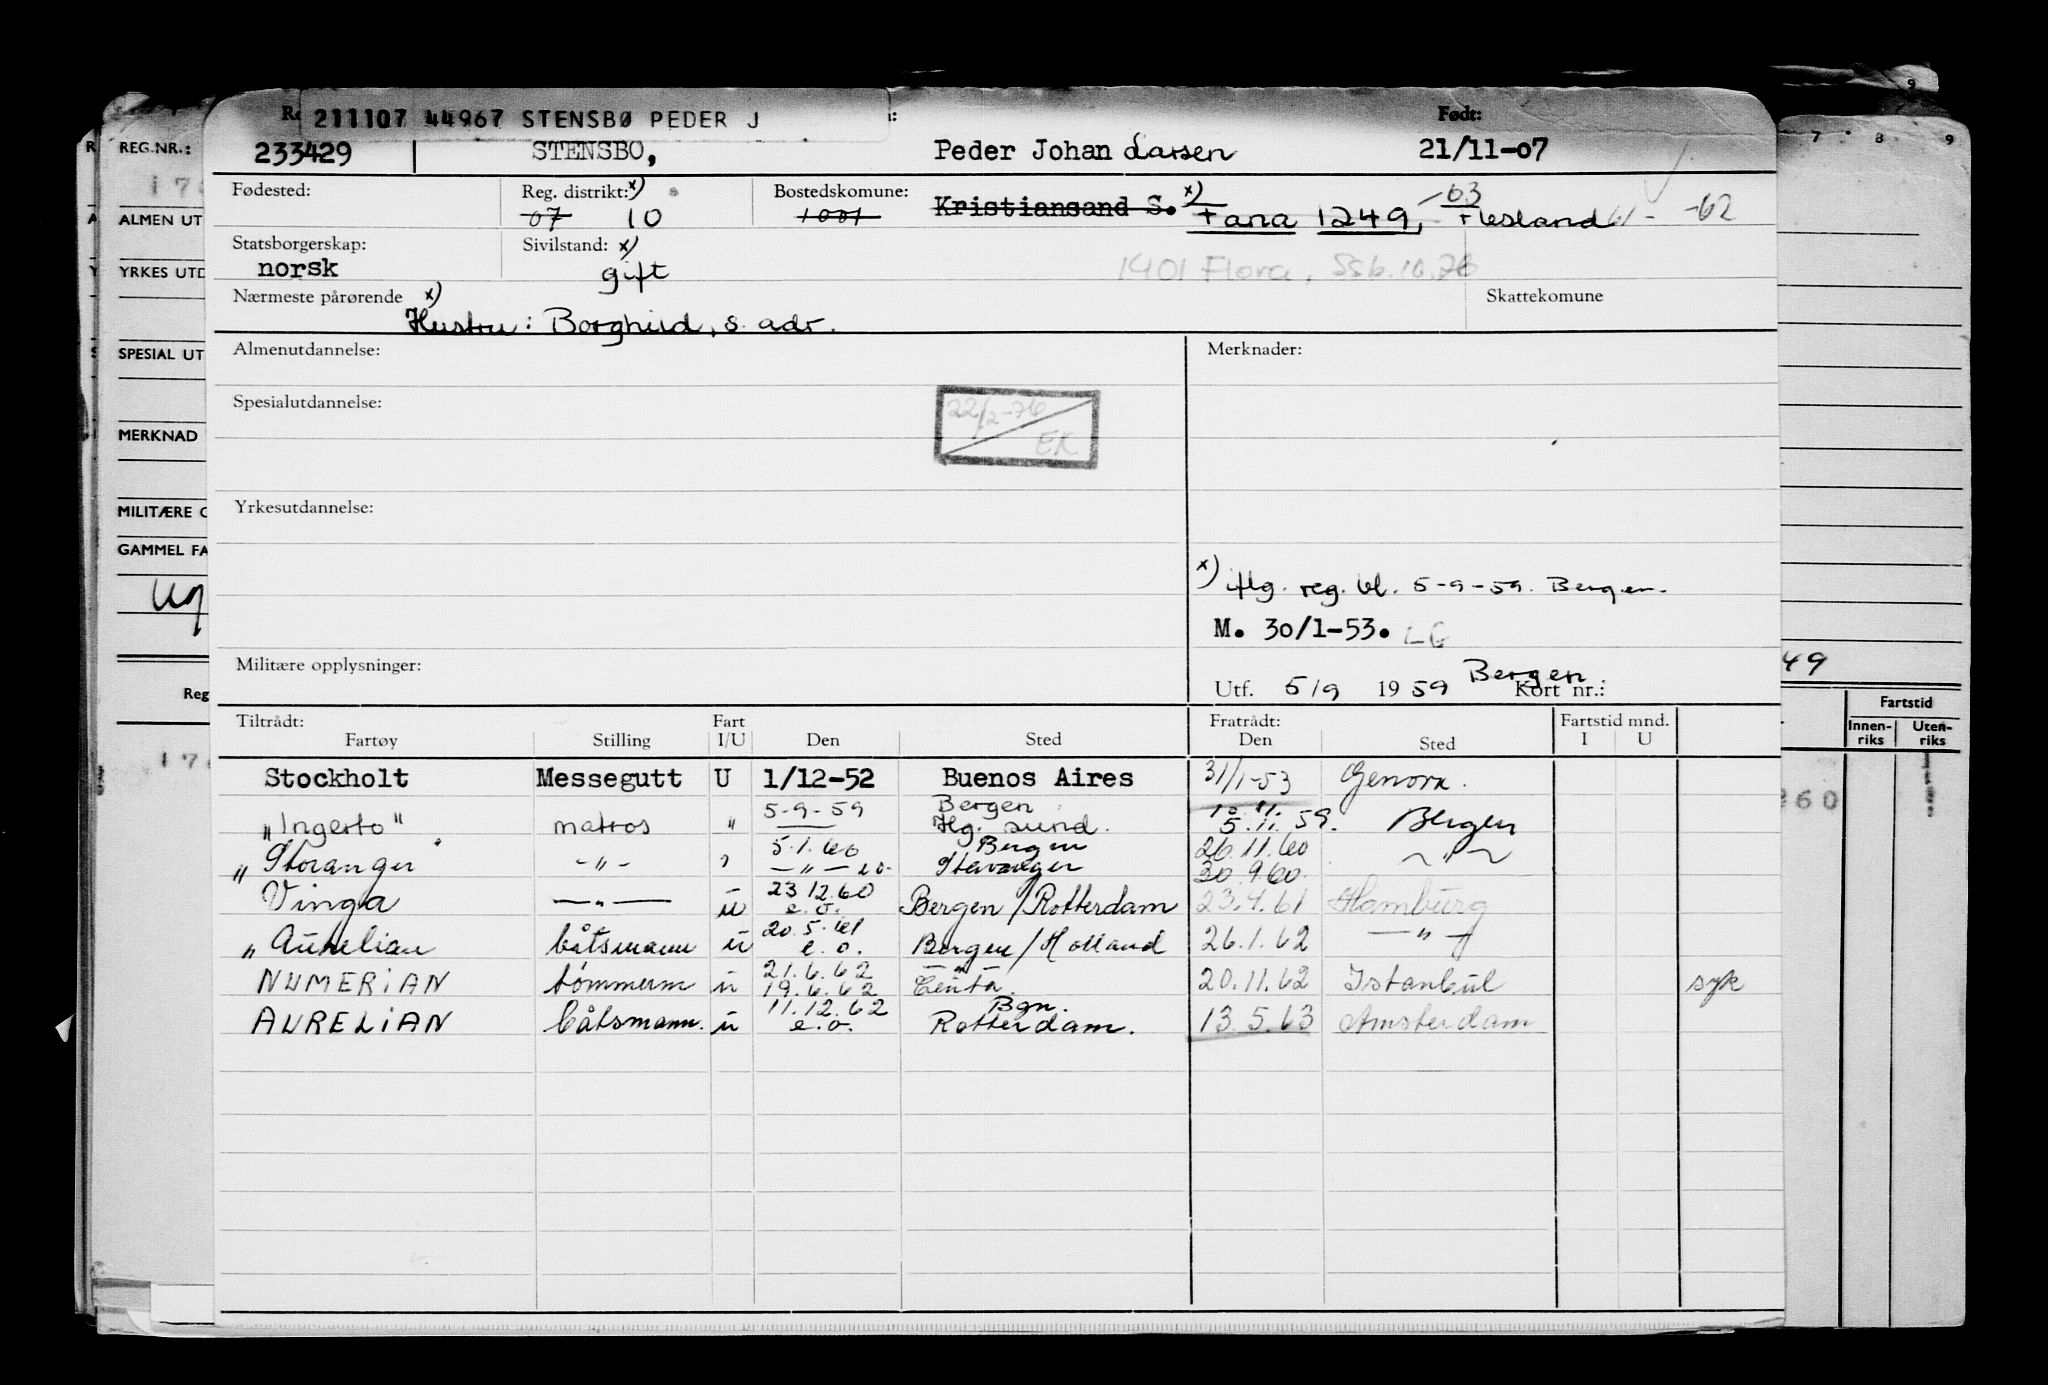 211107 44967 STENSBØ PEDER J
Født:
233429 STENSBO, Peder Johan Larsen 21/11-07
Fødested: Reg. distrikt: x) Bostedskomune: x)
07 10 1001 Kristiansand S. Fana 1249, Flesland 61- -62
63
Statsborgerskap: Sivilstand: x)
norsk gift 1401 Flora, Ssb. 10.76
Nærmeste pårørende x) Skattekomune
Hustru: Borghild, s. adr.
Almenutdannelse: Merknader:
Spesialutdannelse:
22/2-76
EK
Yrkesutdannelse:
x) iflg. reg. bl. 5-9-59. Bergen.
M. 30/1-53. LG
Militære opplysninger:
Bergen.
Utf. 5/9 1959 Kort nr.:
Tiltrådt: Fart Fratrådt: Fartstid mnd.
Fartøy Stilling I/U Den Sted Den Sted I U
Stockholt Messegutt U 1/12-52 Buenos Aires 31/1-53 Genova.
5-9-59 Bergen
"Ingerto" matros " Hg. sund. 5.11.59. Bergen
5.1.60 Bergen 26.11.60
"Storanger" -"- " -"- e.o. Stavanger 30.9.60. -"-
23.12.60
Vinga -"- u e.o. Bergen/Rotterdam 23.4.61 Hamburg
20.5.61
"Aurelian båtsmann u e.o. Bergen/Holland 26.1.62 -"-
21.6.62 -"-
NUMERIAN tømmerm u 19.6.62 Ceuta. 20.11.62 Istanbul syk
11.12.62 Bgn.
AURELIAN båtsmann. u e.o. Rotterdam. 13.5.63 Amsterdam
REG.NR.:
ALMEN UT
YRKES UTD
SPESIAL UT
MERKNAD
MILITÆRE O
GAMMEL FA
Reg
7 8 9
9
49
Fartstid
Innen-
riks
Uten-
riks
960